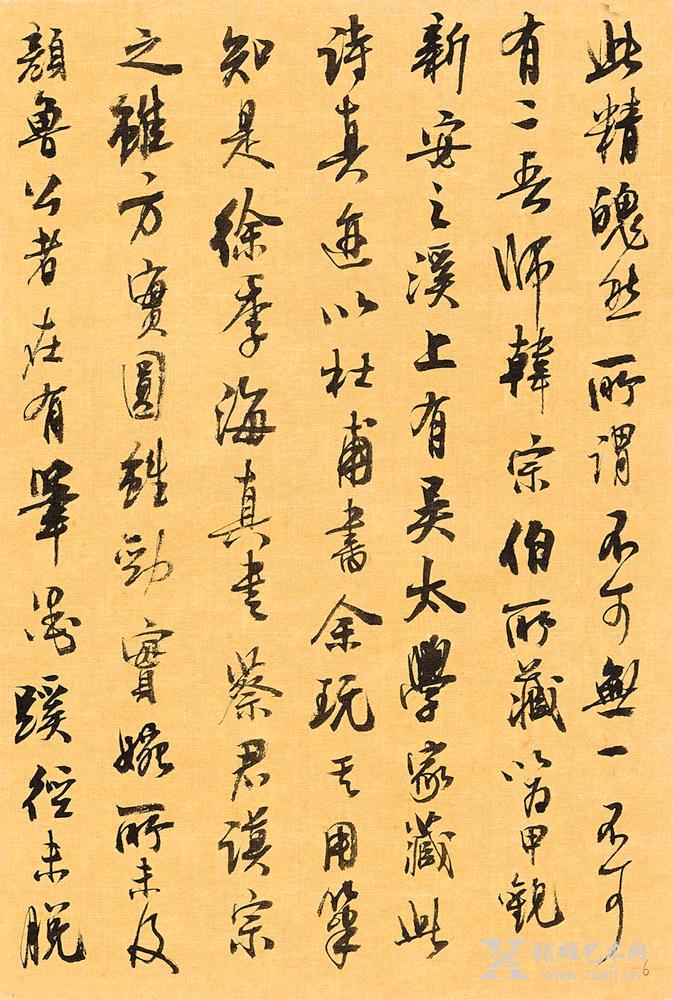 此精魄然所謂不可無一不可
有二吾師韓宗伯所藏以為甲觀
新安之溪上有吳太學家藏此
詩真迹以杜甫書余玩其用筆
知是徐季海真書蔡君謨宗
之雖方實圓雖勁實婉所未及
顏魯公者在有筆墨蹊徑未脫
www.zxart.cn
6